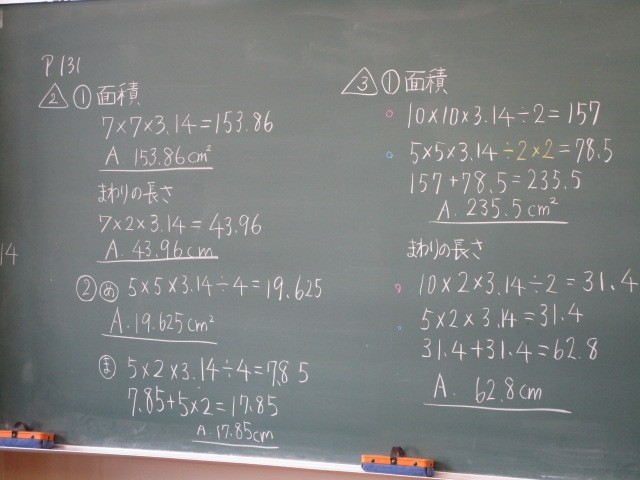 P131
2 ① 面積
7×7×3.14=153.86
A. 153.86cm²
まわりの長さ
7×2×3.14=43.96
A. 43.96cm
② め 5×5×3.14÷4=19.625
A. 19.625cm²
ま 5×2×3.14÷4=7.85
7.85+5×2=17.85
A. 17.85cm
14
3 ① 面積
10×10×3.14÷2=157
5×5×3.14÷2×2=78.5
157+78.5=235.5
A. 235.5cm²
まわりの長さ
10×2×3.14÷2=31.4
5×2×3.14=31.4
31.4+31.4=62.8
A. 62.8cm